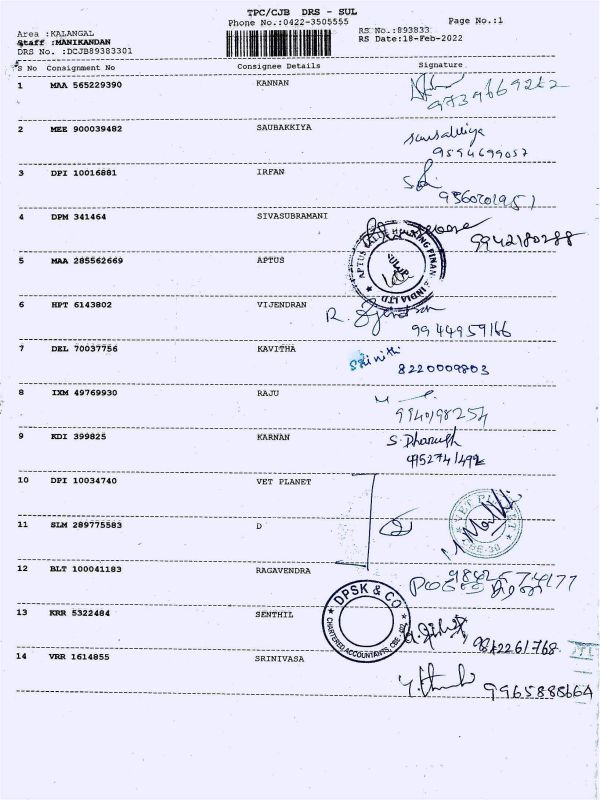 TPC/CJB DRS - SUL
Phone No.:0422-3505555
Page No.:1
Area :KALANGAL
Staff :MANIKANDAN
DRS No. :DCJB89383301
RS No.:893833
RS Date:18-Feb-2022
S No Consignment No Consignee Details Signature
1 MAA 565229390 KANNAN
9739669262
2 MEE 900039482 SAUBAKKIYA
9594699057
3 DPI 10016881 IRFAN
4 DPM 341464 SIVASUBRAMANI
9942180288
APTUS HOUSING FINAN INDIA LTD
5 MAA 285562669 APTUS
6 HPT 6143802 VIJENDRAN
R.
9944959166
7 DEL 70037756 KAVITHA
Srinithi
8220009803
8 IXM 49769930 RAJU
9940198254
9 KDI 399825 KARNAN
S. Dharugh
10 DPI 10034740 VET PLANET
VET PLANET
11 SLM 289775583 D
12 BLT 100041183 RAGAVENDRA
DPSK & CO
CHARTERED ACCOUNTANTS, CBE
13 KRR 5322484 SENTHIL
9842261768
14 VRR 1614855 SRINIVASA
9965888664